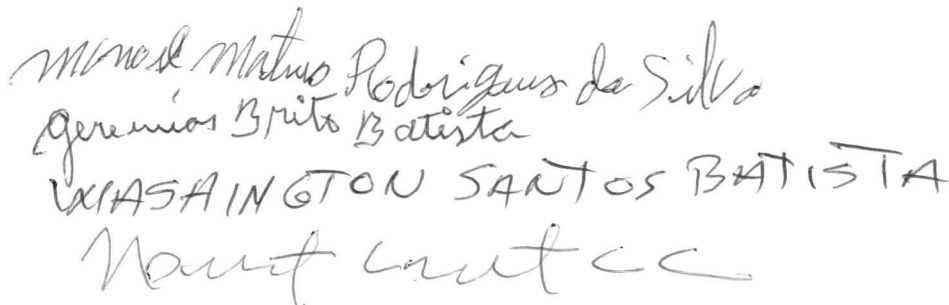 Manoel Mateus Rodrigues da Silva
Geremias Brito Batista
WASHINGTON SANTOS BATISTA